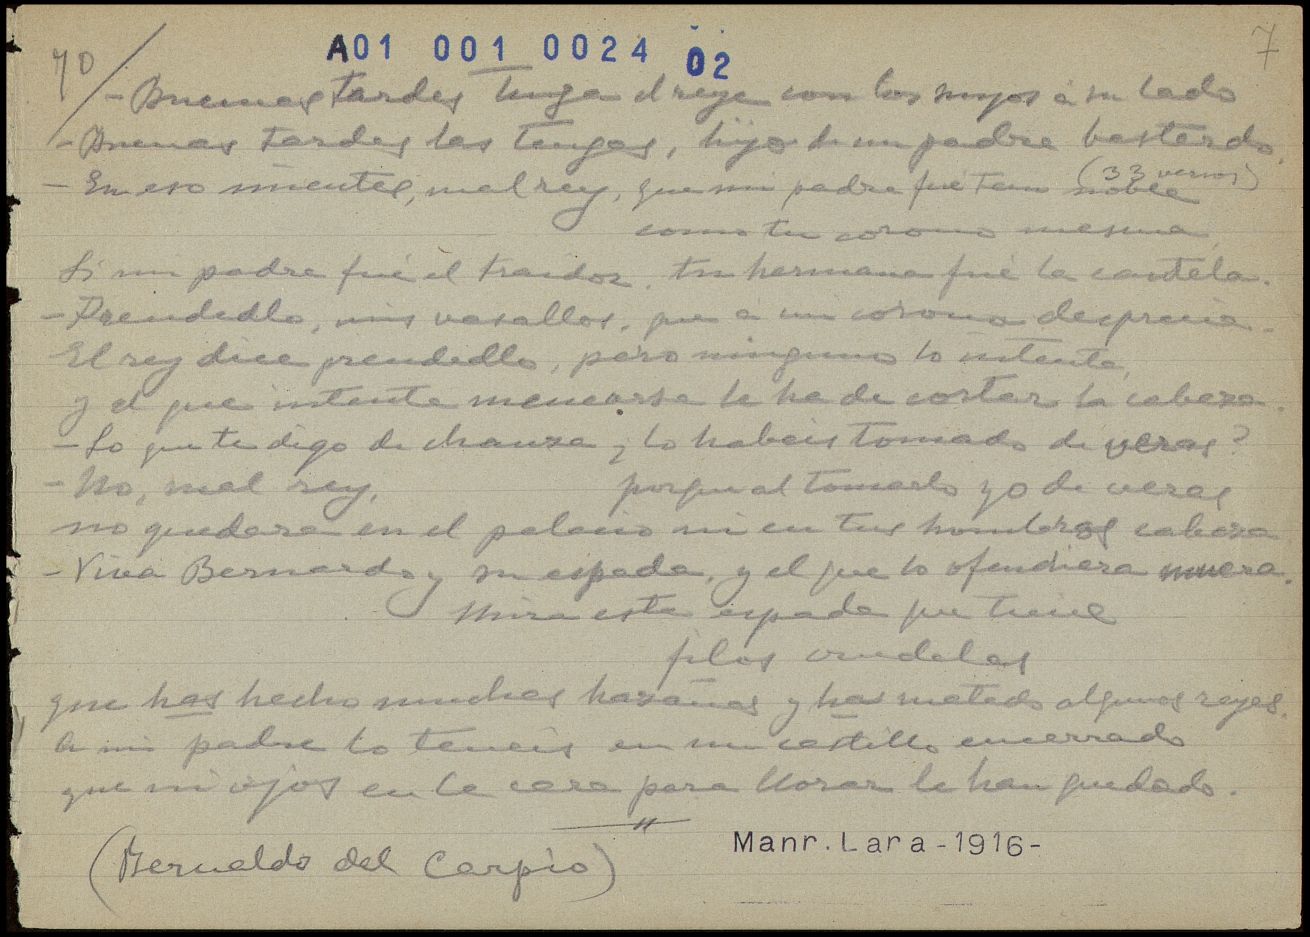 A01 001 0024 02
7
40
- Buenas tardes tenga el reye con los suyos á su lado
- Buenas tardes las tengas, hijo de un padre basterdo.
(33 versos)
- En eso mientes, mal rey, que mi padre fué tan noble
como tu corona mesma,
Si mi padre fué el traidor, tu hermana fué la cautela.
- Prendedlo, mis vasallos, que á mi corona desprecia.
El rey dice prendedlo, pero ninguno lo intenta,
y el que intenta menearse le ha de cortar la cabeza.
- Lo que te digo de chanza ¿lo habeis tomado de veras?
- No, mal rey, porque al tomarlo yo de veras
no quedara en el palacio ni en tus hombros cabeza.
- Viva Bernardo y su espada, y el que lo ofendiera muera.
Mira esta espada que tiene
filos crudelas
que has hecho muchas hazañas y has matado algunos reyes.
A mi padre lo teneis en un castillo encerrado
que ni ojos en la cara para llorar le han quedado.
(Bernaldo del Carpio)
Manr. Lara -1916-